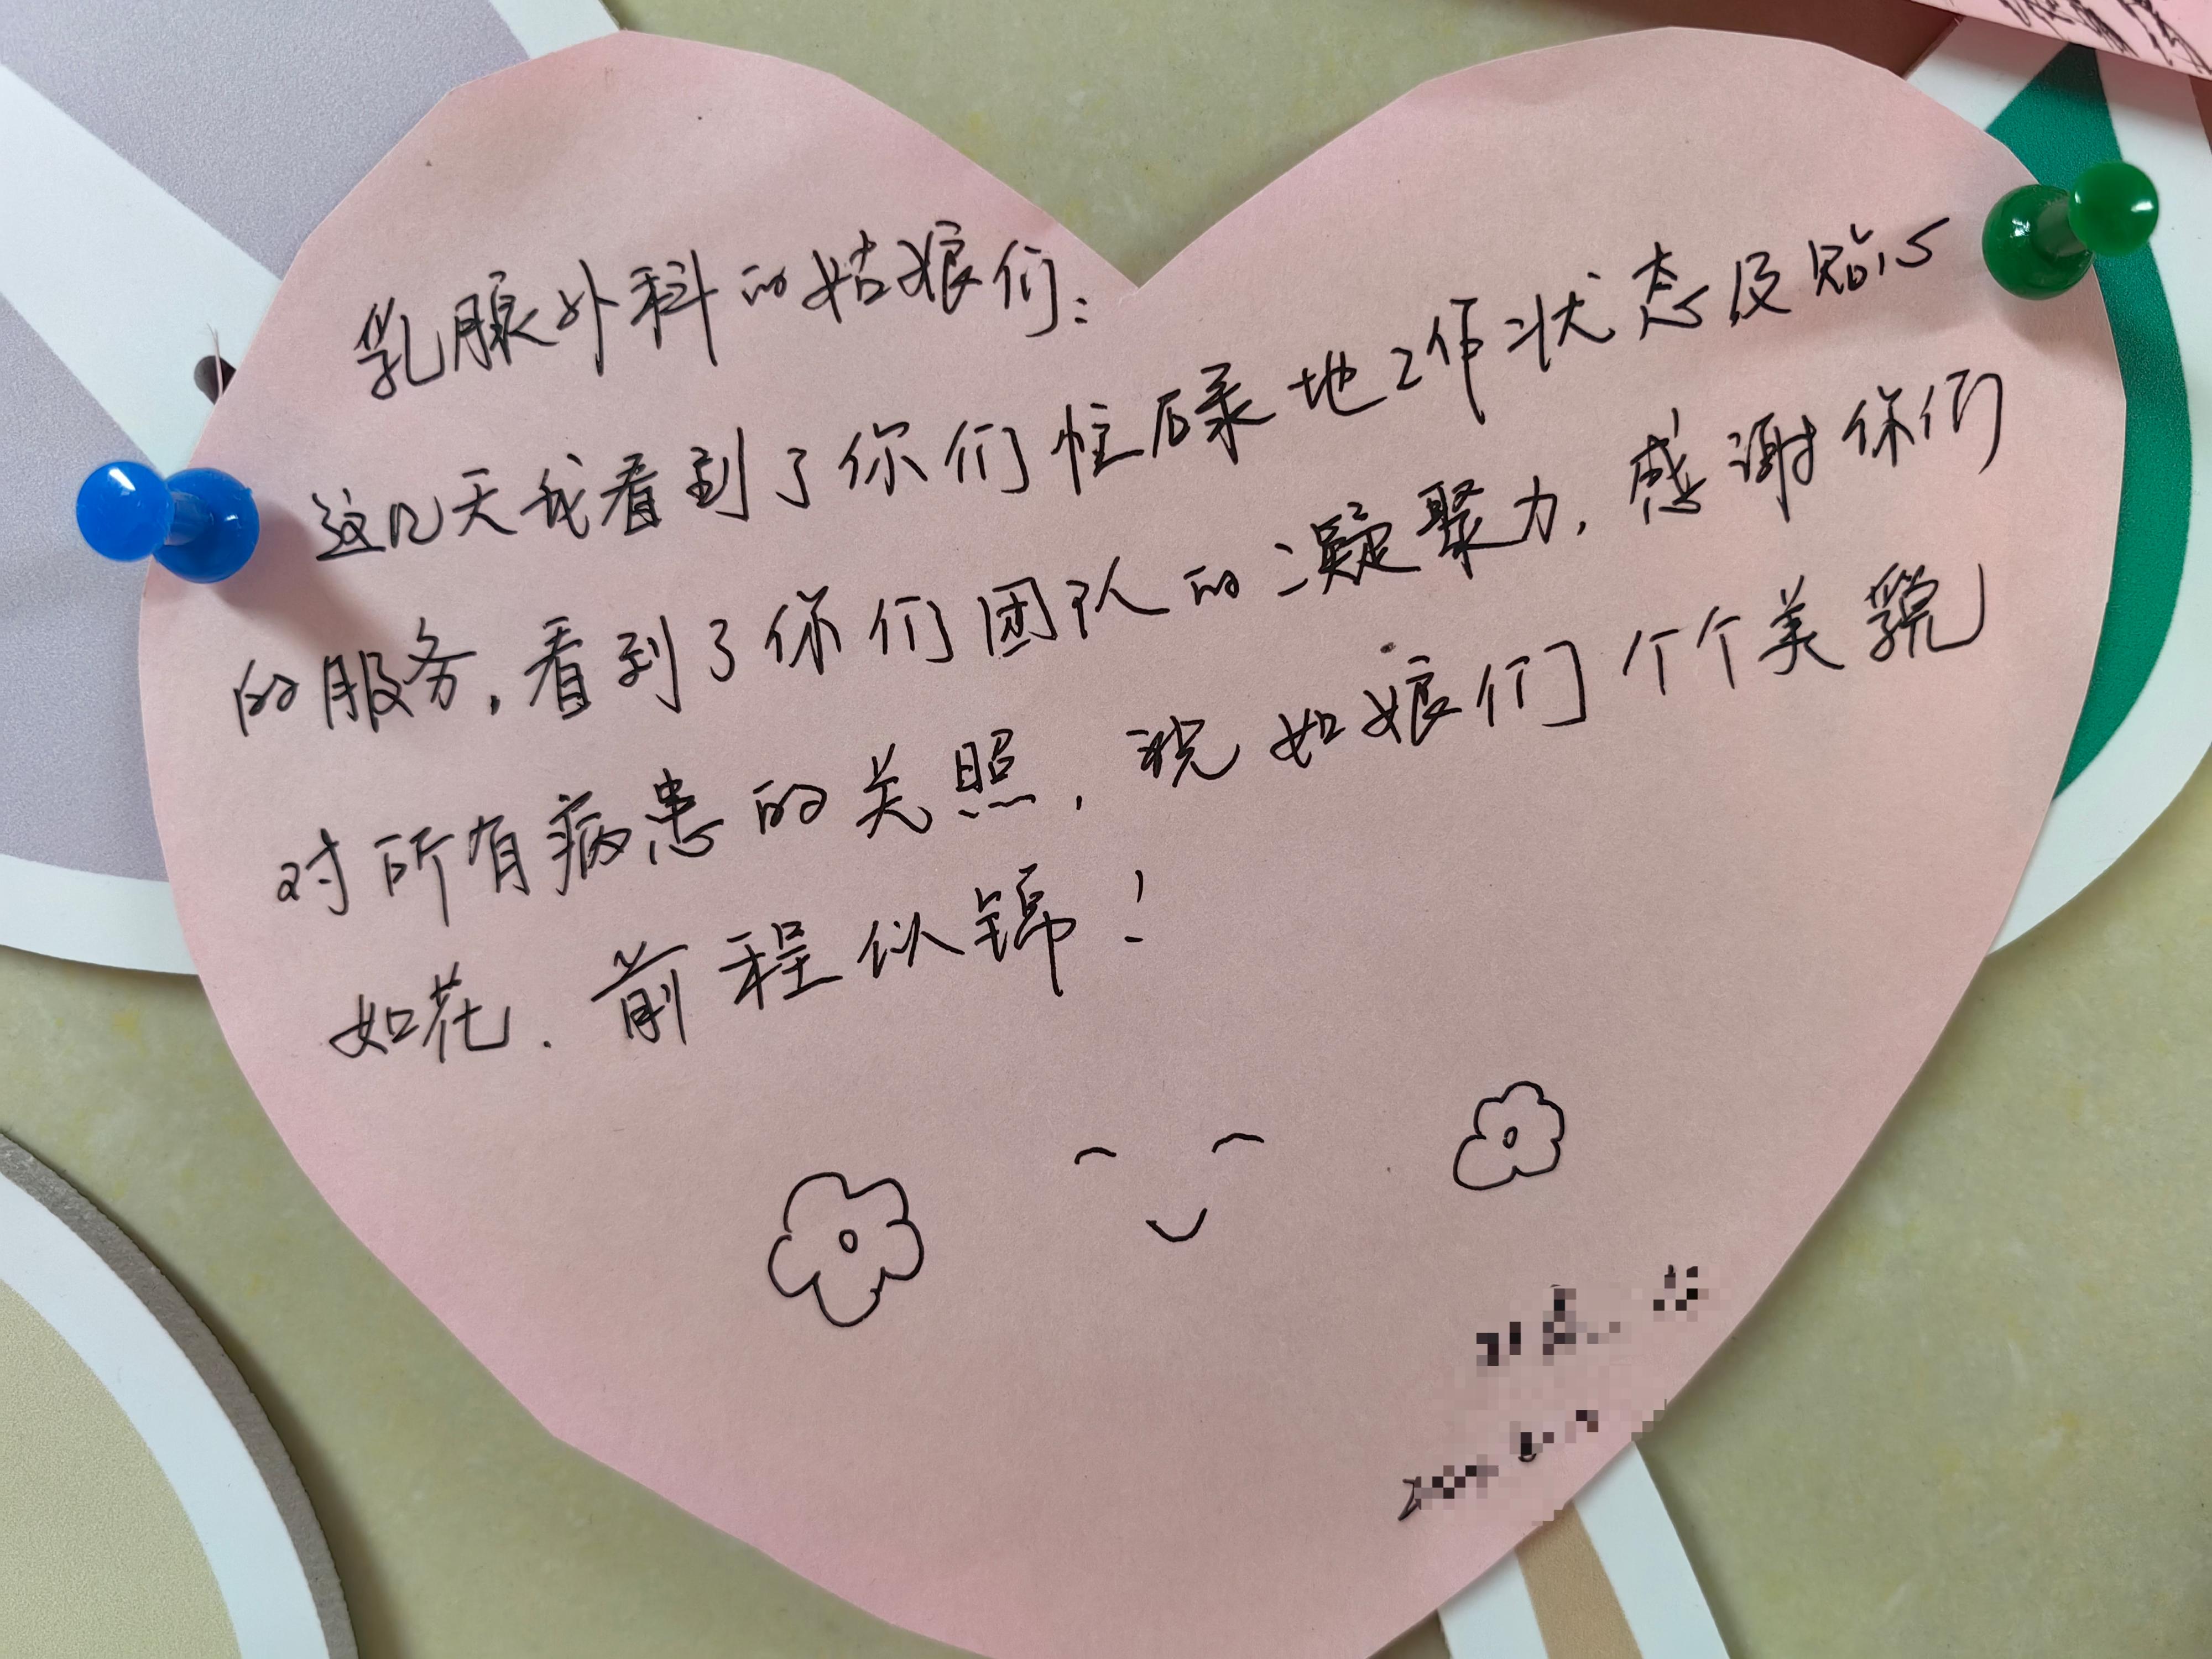 乳腺外科的姑娘们：
这几天我看到了你们忙碌地工作状态及贴心
的服务，看到了你们团队的凝聚力，感谢你们
对所有病患的关照，祝姑娘们个个美貌
如花，前程似锦！